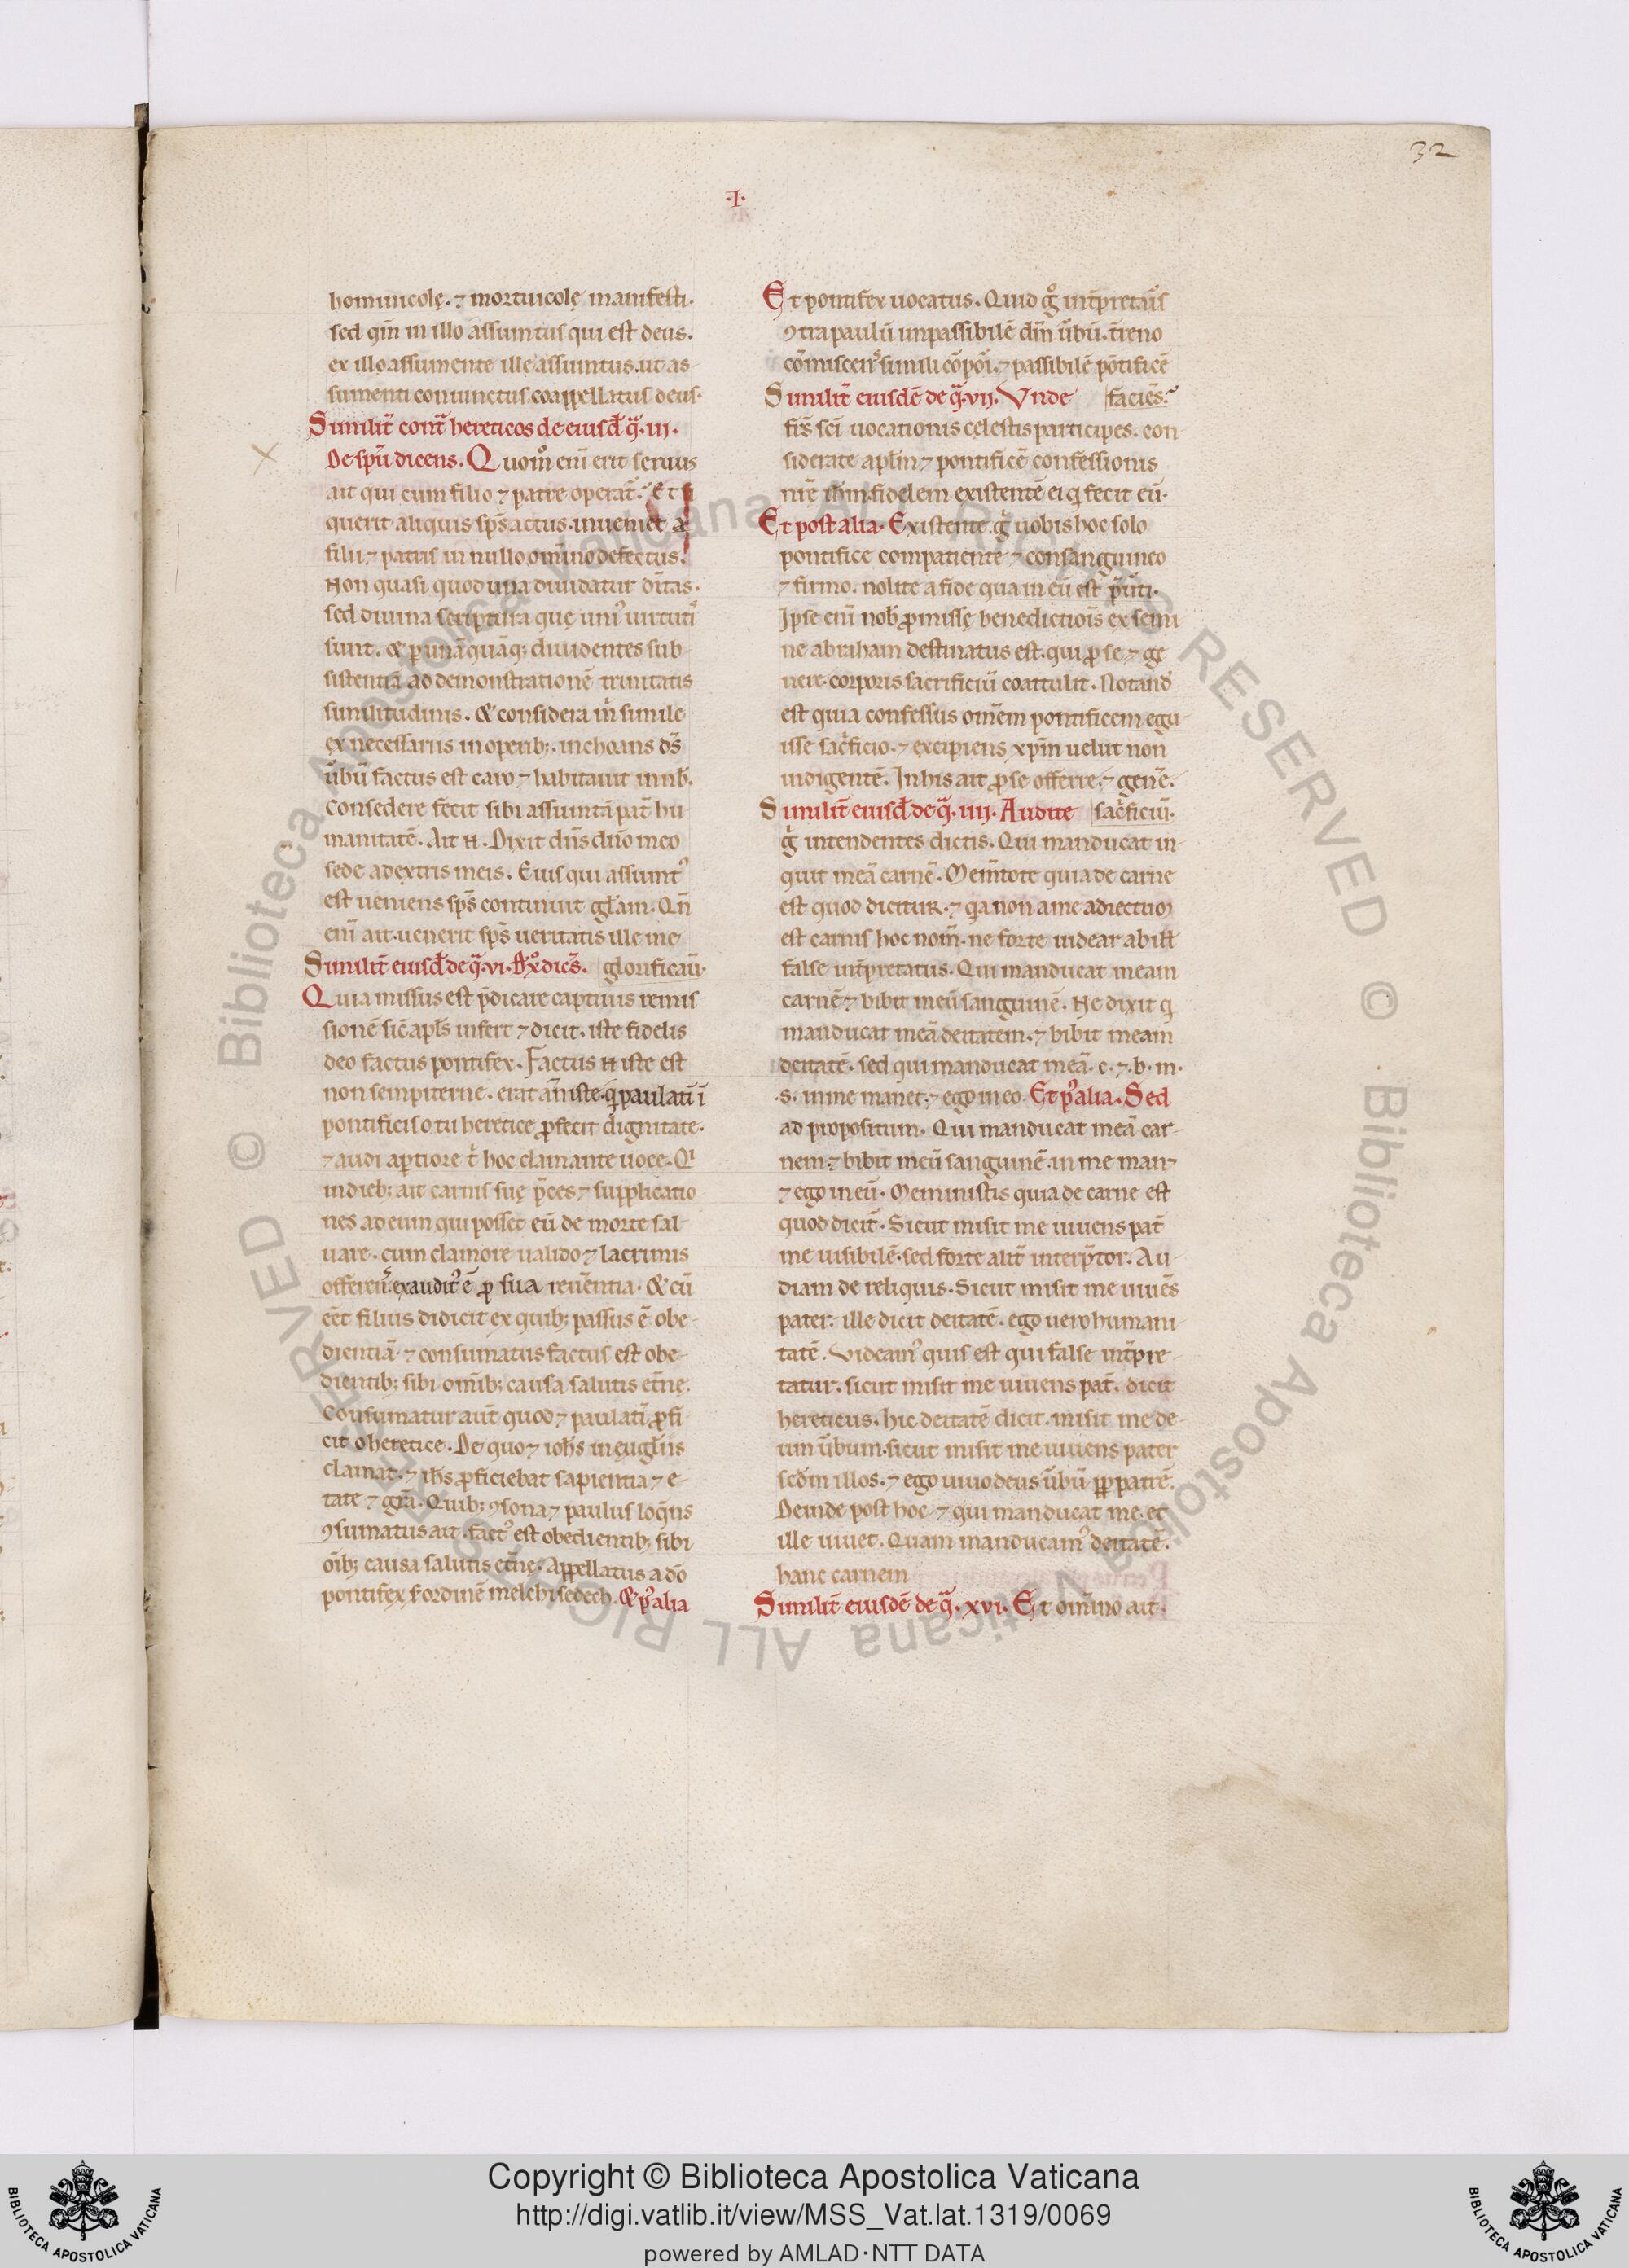 32
·I·
hominicolę. ⁊ mortuicolę manifesti.
sed qm̄ in illo assumtus qui est deus.
ex illo assumente ille assumtus. ut as-
sumenti coniunctus coappellatus deus.
Similit̄ cont̄ hereticos de eiusđ q̄. iii.
De spū dicens. Quom̊ eni erit seruus
ait qui cum filio ⁊ patre operat̄. Et si
querit aliquis sp̄s actus. inueniet a
filii. ⁊ patris in nullo om̄ino defectus.
Non quasi quod una diuidatur d̄itas.
sed diuina scriptura quę uni᷒ uirtuti᷒
sunt. & p̱ unāquāq; diuidentes sub-
sistentiā ad demonstrationē trinitatis
similitudinis. & considera m̊ simile
ex necessariis in operib;. inchoans ds̄
ūbū factus est caro ⁊ habitauit in nob̄.
Consedere fecit sibi assumtā pat̄ hu-
manitatē. Ait n̄. Dixit dn̄s dn̄o meo
sede a dextris meis. Eius qui assumt᷒
est ueniens sp̄s continuit gl̄am. Qn̄
eni ait. uenerit sp̄s ueritatis ille me
Similit̄ eiusđ de q̄. vi. dices̄. glorificau̅.
Quia missus est p̄dicare captiuis remis
sionē sic̄ apl̄s infert ⁊ dicit. iste fidelis
deo factus pontifex. Factus n̄ iste est
non sempiterne. erat an̄ iste. q̱ paulati i
pontificis o tu heretice ꝓfecit dignitate.
⁊ audi aptiore t̄ hoc clamante uoce. Qi
in dieb; ait carnis suę p̄ces ⁊ supplicatio
nes ad eum qui posset eū de morte sal-
uare. cum clamore ualido ⁊ lacrimis
offeren᷒. exaudit᷒ ē ꝓ sua reuēentia. & cū
eēt filius didicit ex quib; passus ē obe-
dientiā. ⁊ consumatus factus est obe-
dientib; sibi om̄ib; causa salutis et̄nę.
Consumatur aut̄ quod ⁊ paulati ꝓfi-
cit o heretice. De quo ⁊ ioh̄s in eugl̄iis
clamat. ⁊ ih̄s ꝓficiebat sapientia ⁊ e-
tate ⁊ gr̄a. Quib; ꝯsona ⁊ paulus loqn̄s
ꝯsumatus ait. fact᷒ est obedientib; sibi
oīb; causa salutis et̄nę. Appellatus a dō
pontifex s ordinē melchisedech. & p᷒ alia
Et pontifex uocatus. Quid g̊ int̄pretar̄is
ꝯtra paulū impassibilē dm̄ ūbū. t̄reno
cōmiscen᷒ simili cōpoi. ⁊ passibilē pōtificē
Similit̄ eiusdē de q̄. vii. Unde facies̄.
fr̄s sc̄i uocationis cęlestis participes. con
siderate apl̄m ⁊ pontificē confessionis
nr̄ē ih̄m. fidelem existentē ei q̱ fecit eū.
Et post alia. Existente g̊ uobis hoc solo
pontifice compatiente ⁊ consanguineo
⁊ firmo. nolite a fide qua in eū est p̄uti.
Ipse eni nob̄ ꝓmissę benedictiois̄ ex semi
ne abraham destinatus est. qui ꝓ se ⁊ ge
nere corporis sacrificiū coattulit. Notanđ
est quia confessus omēm pontificem egu-
isse sac̊ficio. ⁊ excipiens xp̄m uelut non
indigentē. In his ait ꝓ se offerre. ⁊ genēe.
Similit̄ eiusđ de q̄. iiii. Audite sac̊ficiū.
g̊ intendentes dictis. Qui manducat in-
quit meā carnē. Mem̄tote quia de carne
est quod dicitur. ⁊ q̱a non a me adiectum
est carnis hoc nom̄. ne forte uidear ab ill̄
false int̄pretatus. Qui manducat meam
carnē ⁊ bibit meū sanguinē. Ne dixit q̱
manducat meā deitatem. ⁊ bibit meam
deitatē. sed qui manducat meā. c. ⁊. b. m.
.s. in me manet. ⁊ ego in eo. Et p᷒ alia. Sed
ad propositum. Qui manducat meā car-
nem ⁊ bibit meū sanguinē. in me man⁊
⁊ ego in eū. Meministis quia de carne est
quod dicit̄. Sicut misit me uiuens pat̄
me uisibilē. sed forte alit̄ interp̄tor. Au-
diam de reliquis. Sicut misit me uiuēs
pater. ille dicit deitatē. ego uero humani-
tatē. Videam᷒ quis est qui false int̄pre-
tatur. sicut misit me uiuens pat̄. dicit
hereticus. hic deitatē dicit. misit me de-
um ūbum. sicut misit me uiuens pater
scđm illos. ⁊ ego uiuo deus ūbū ꝓp patrē.
Deinde post hoc ⁊ qui manducat me. et
ille uiuet. Quam manducam᷒ deitatē.
hanc carnem
Similit̄ eiusdē de q̄. xvi. Et om̄ino ait.
© Biblioteca Apostolica Vaticana ALL RIGHTS RESERVED
Copyright © Biblioteca Apostolica Vaticana
http://digi.vatlib.it/view/MSS_Vat.lat.1319/0069
powered by AMLAD·NTT DATA
BIBLIOTECA APOSTOLICA VATICANA
BIBLIOTECA APOSTOLICA VATICANA